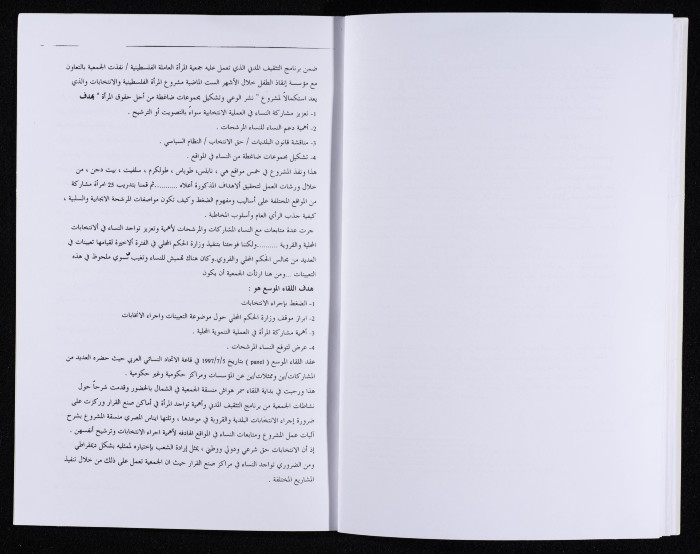 ضمن برنامج التثقيف المدني الذي تعمل عليه جمعية المرأة العاملة الفلسطينية / نفذت الجمعية بالتعاون
مع مؤسسة إنقاذ الطفل خلال الأشهر الست الماضية مشروع المرأة الفلسطينية والانتخابات والذي
يعد استكمالاً لمشروع " نشر الوعي وتشكيل مجموعات ضاغطة من أجل حقوق المرأة " بهدف
1- تعزيز مشاركة النساء في العملية الانتخابية سواءً بالتصويت أو الترشيح .
2- أهمية دعم النساء للنساء المرشحات .
3- مناقشة قانون البلديات / حق الانتخاب / النظام السياسي .
4- تشكيل مجموعات ضاغطة من النساء في المواقع .
هذا ونفذ المشروع في خمس مواقع هي ، نابلس، طوباس ، طولكرم ، سلفيت ، بيت دجن ، من
خلال ورشات العمل لتحقيق الاهداف المذكورة أعلاه ..........ثم قمنا بتدريب 25 امرأة مشاركة
من المواقع المختلفة على أساليب ومفهوم الضغط وكيف تكون مواصفات المرشحة الايجابية والسلبية ،
كيفية جذب الرأي العام وأسلوب المخاطبة .
جرت عدة متابعات مع النساء المشاركات والمرشحات لأهمية وتعزيز تواجد النساء في الانتخابات
المحلية والقروية ..........ولكننا فوجئنا بتنفيذ وزارة الحكم المحلي في الفترة الأخيرة لقيامها تعيينات في
العديد من مجالس الحكم المحلي والقروي.وكان هناك تهميش للنساء وتغيب نسوي ملحوظ في هذه
التعيينات ...ومن هنا ارتأت الجمعية أن يكون
هدف اللقاء الموسع هو :
1- الضغط بإجراء الانتخابات
2- ابراز موقف وزارة الحكم المحلي حول موضوعة التعيينات واجراء الانتخابات
3- أهمية مشاركة المرأة في العملية التنموية المحلية .
4- عرض لتوقع النساء المرشحات .
عقد اللقاء الموسع ( panel ) بتاريخ 1997/7/5 في قاعة الاتحاد النسائي العربي حيث حضره العديد من
المشاركات/ين وممثلات/ين عن المؤسسات ومراكز حكومية وغير حكومية .
هذا ورحبت في بداية اللقاء سمر هواش منسقة الجمعية في الشمال بالحضور وقدمت شرحاً حول
نشاطات الجمعية من برنامج التثقيف المدني وأهمية تواجد المرأة في أماكن صنع القرار وركزت على
ضرورة إجراء الانتخابات البلدية والقروية في موعدها ، وتلتها ايناس المصري منسقة المشروع بشرح
آليات عمل المشروع ومتابعات النساء في المواقع الهادفه لأهمية اجراء الانتخابات وترشيح أنفسهن .
إذ أن الانتخابات حق شرعي ودولي ووطني ، يمثل إرادة الشعب بإختياره لممثليه بشكل ديمقراطي
ومن الضروري تواجد النساء في مراكز صنع القرار حيث ان الجمعية تعمل على ذلك من خلال تنفيذ
المشاريع المختلفة .